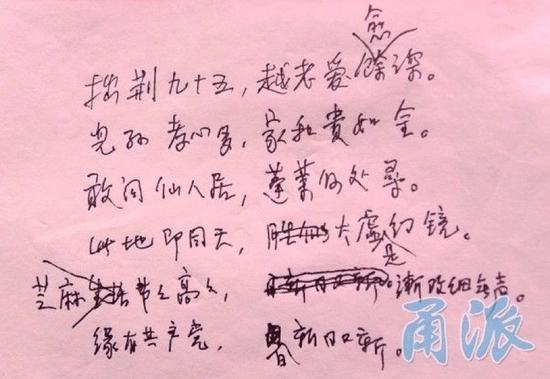 愈
拙荆九十五，越老爱馀深。
儿孙孝心多，家和贵如金。
敢问仙人居，蓬莱何处寻。
此地即同天，太虚幻镜。
是
芝麻节节高，渐改细无声。
缘有共产党，日新日又新。
甬派